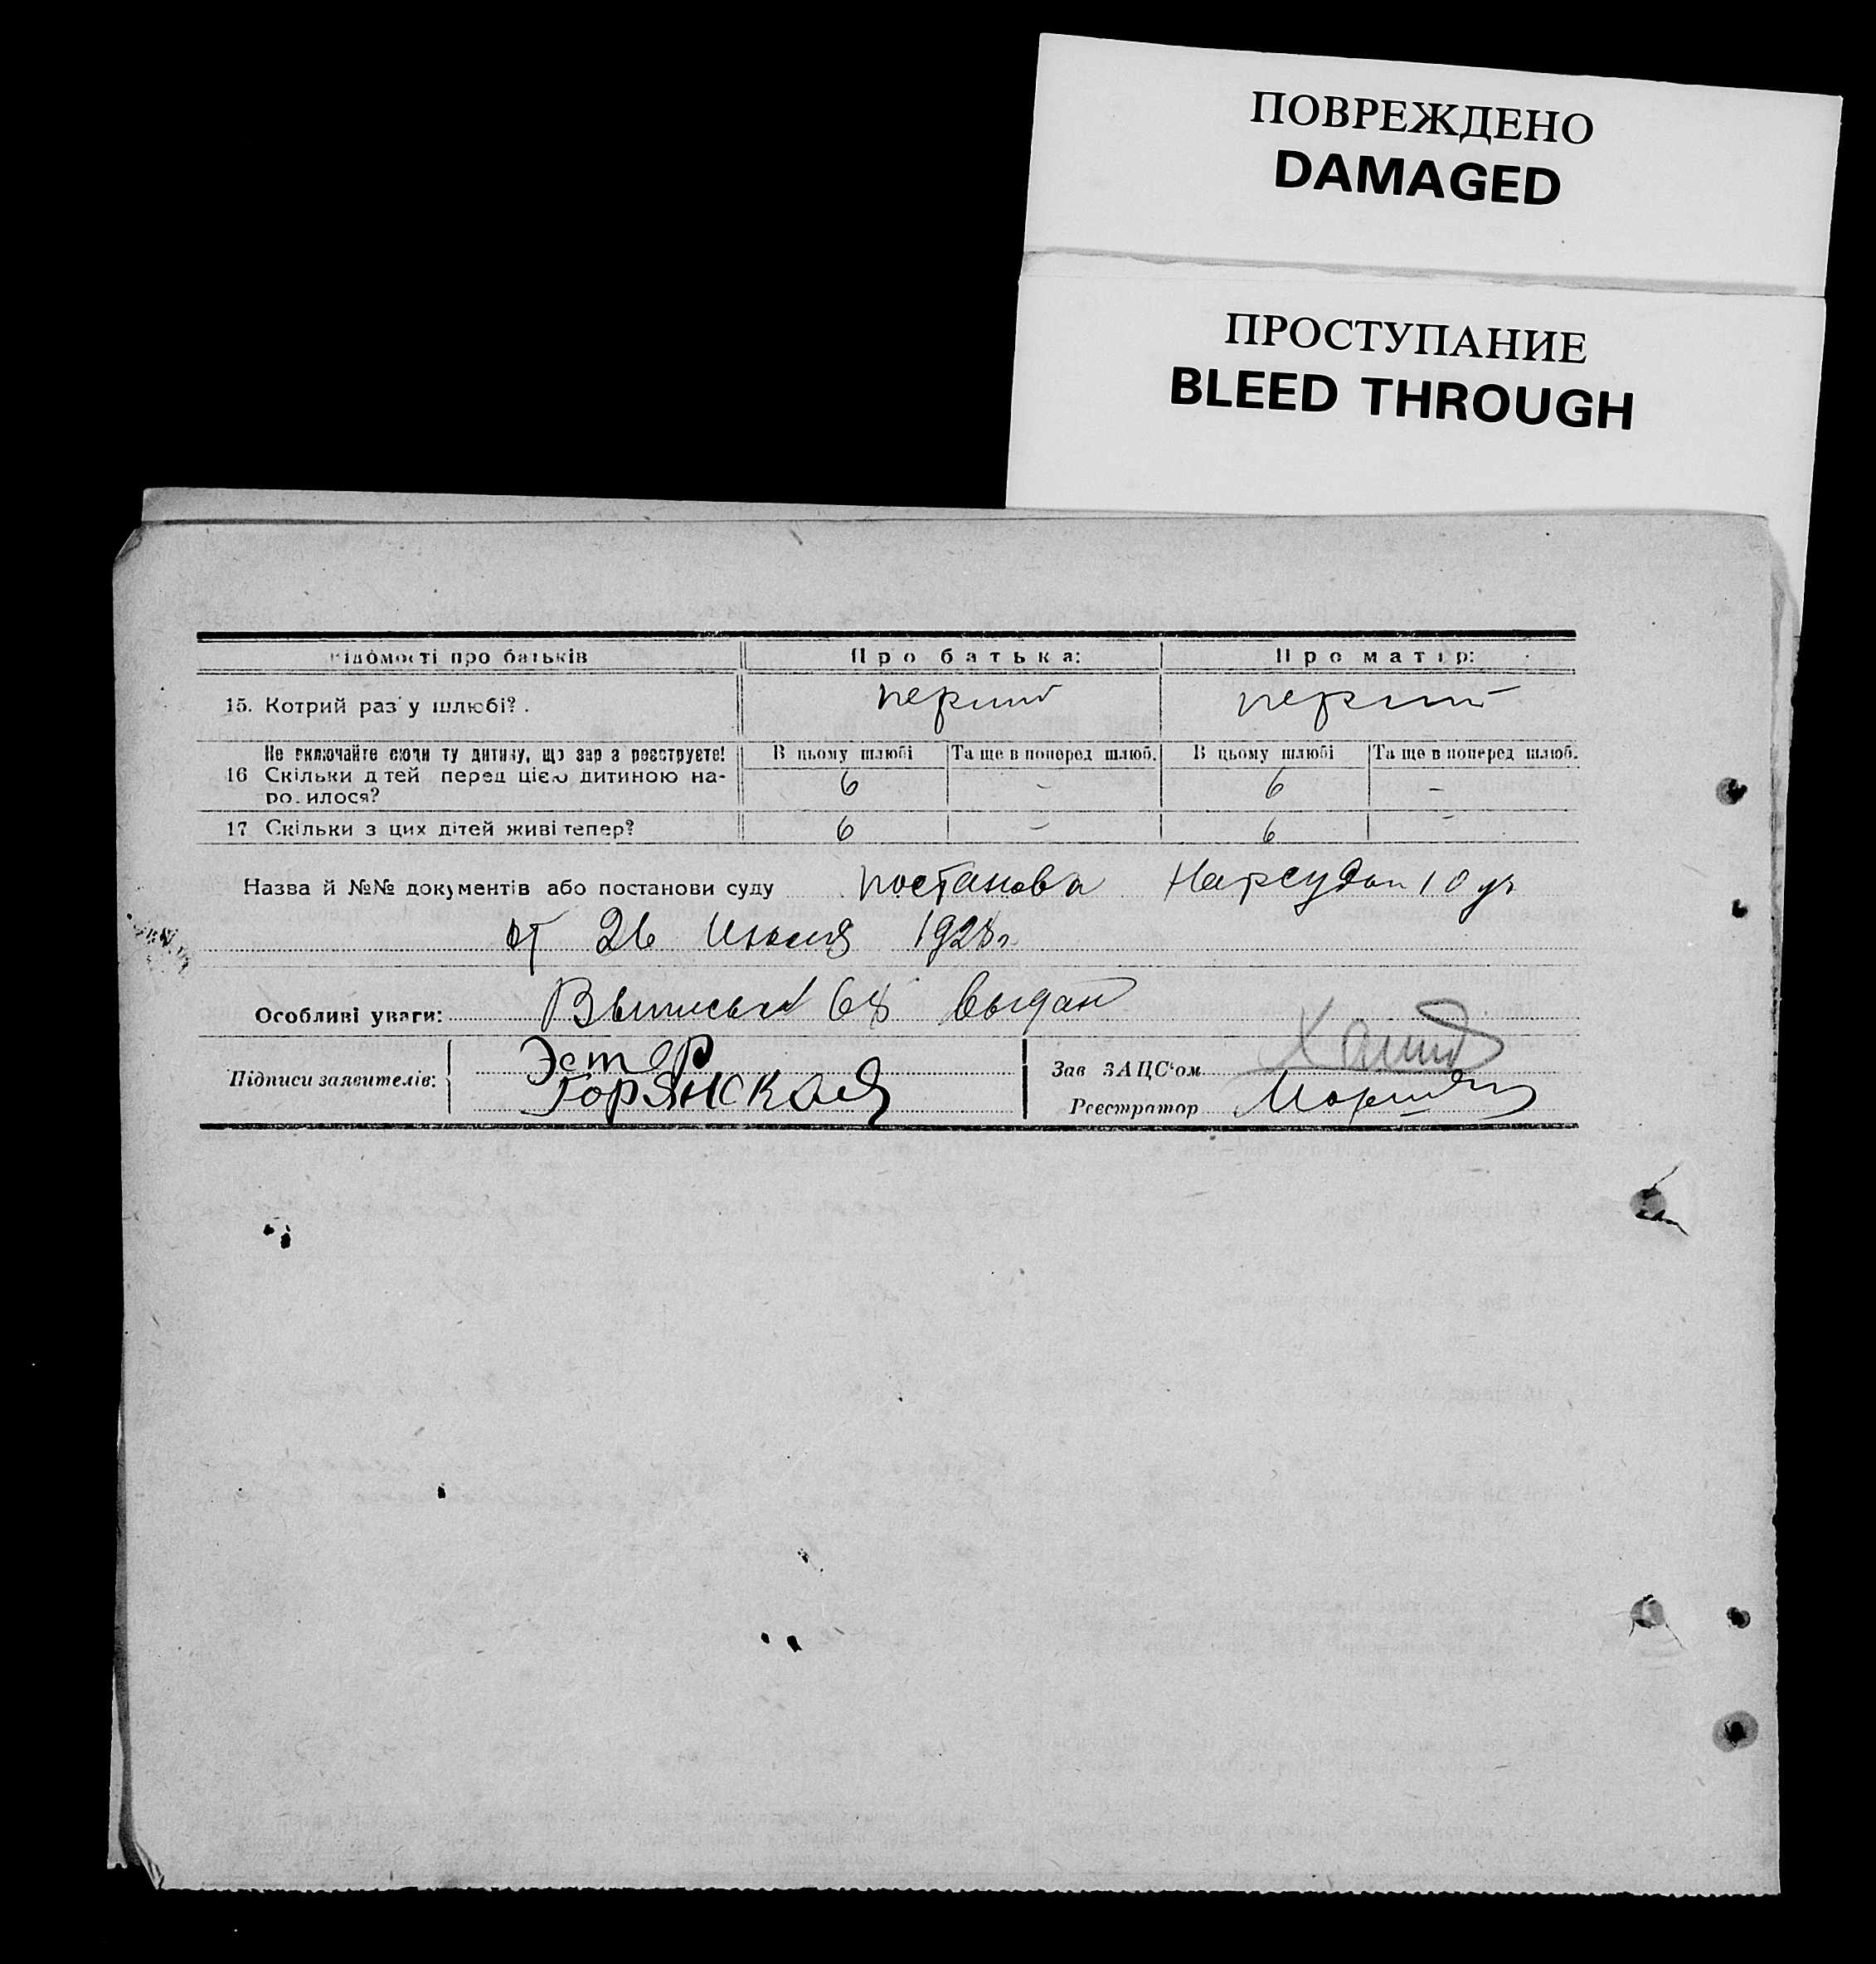 ПОВРЕЖДЕНО
DAMAGED
ПРОСТУПАНИЕ
BLEED THROUGH
Відомості про батьків Про батька: Про матір:
15. Котрий раз у шлюбі?. перший перший
Не включайте сюди ту дитину, що зараз реєструєте! В цьому шлюбі Та ще в поперед шлюб. В цьому шлюбі Та ще в поперед шлюб.
16 Скільки дітей перед цією дитиною на- 6 - 6 -
родилося?
17 Скільки з цих дітей живі тепер? 6 - 6 -
Назва й №№ документів або постанови суду постанова Нарсуда 10 уч
от 26 Июля 1928 г
Особливі уваги: Выписька 68 выдан
Підписи заявителів: Эстер
Горянская
Зав ЗАЦС'ом
Реєстратор